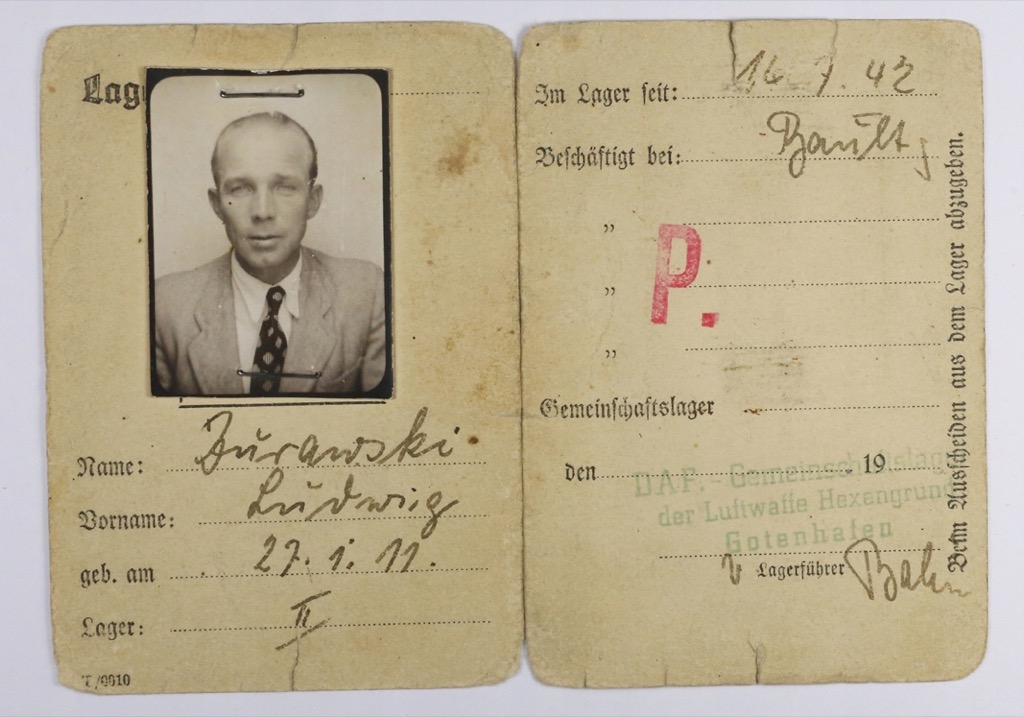 Lag
Name: Zurawski
Vorname: Ludwig
geb. am 27. 1. 11.
Lager: II
T/0010
Im Lager seit: 16 7. 42
Beschäftigt bei:
„
„
„
P.
Gemeinschaftslager
den 19
DAF.-Gemeinschaftslag
der Luftwaffe Hexengrund
Gotenhafen
Lagerführer
Beim Ausscheiden aus dem Lager abzugeben.